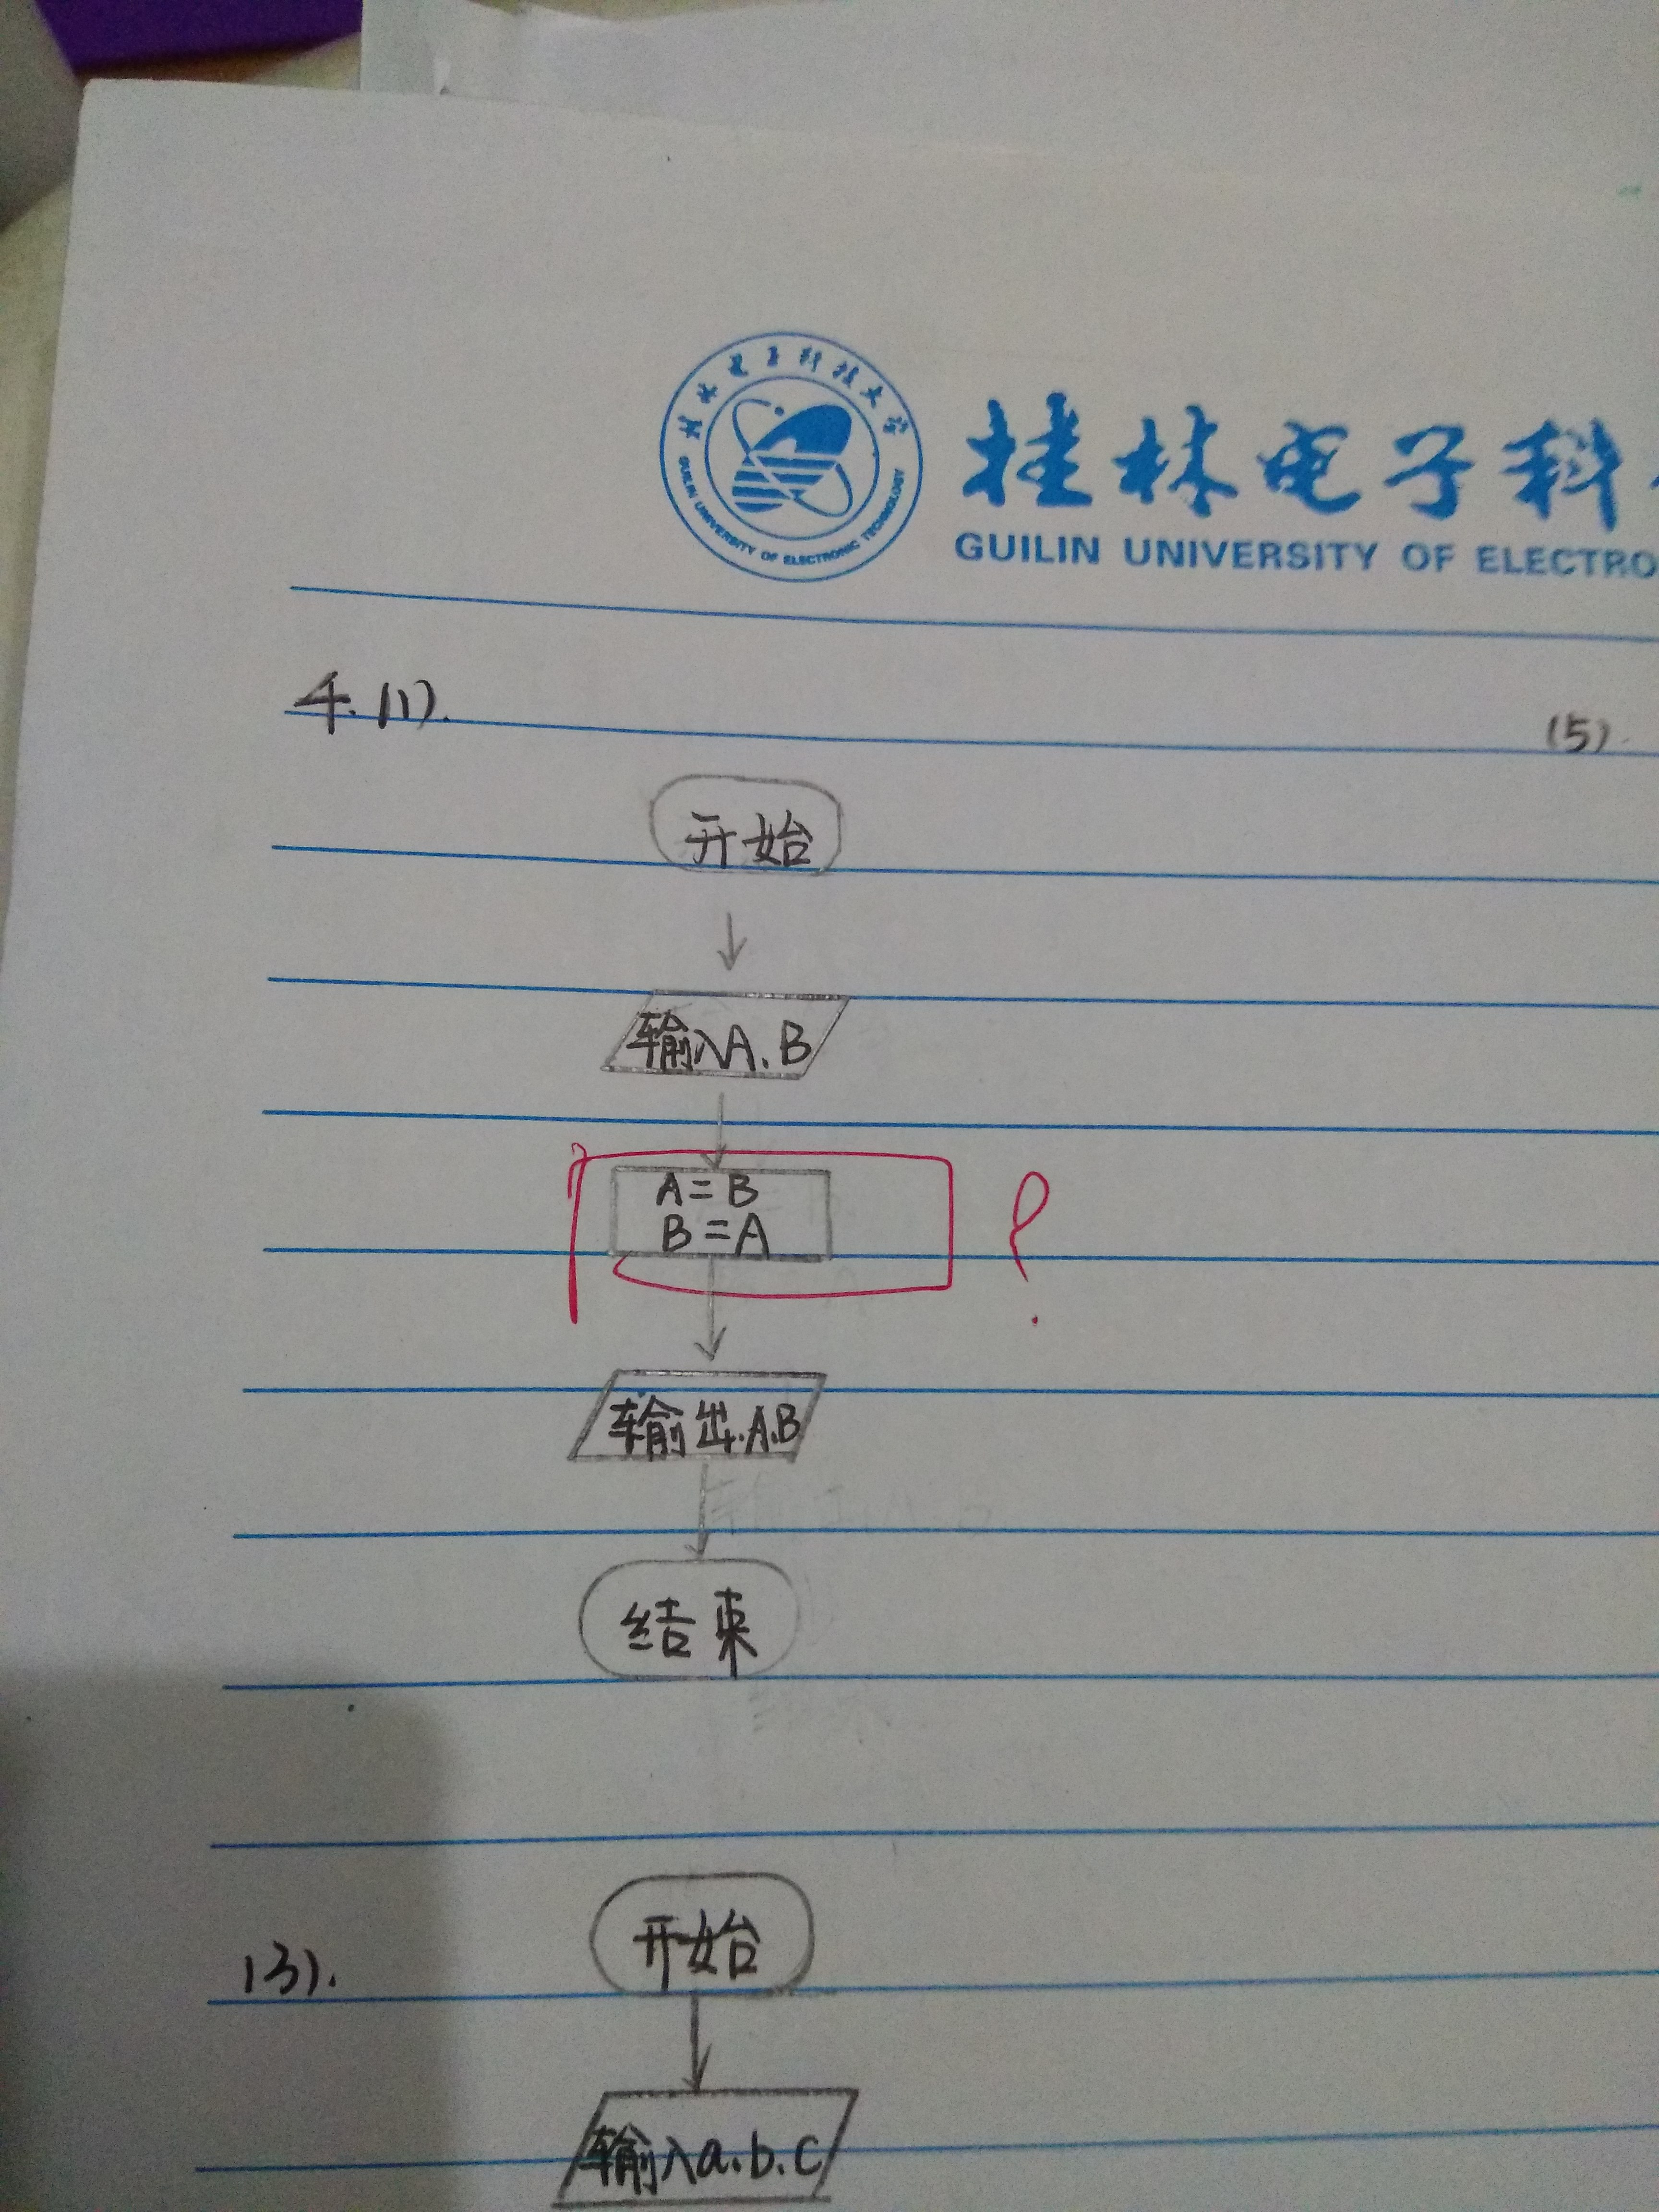 桂林电子科技大学
GUILIN UNIVERSITY OF ELECTRONIC TECHNOLOGY
桂林电子科
GUILIN UNIVERSITY OF ELECTRO
4.(1).
(5).
开始
输入A.B
A=B
B=A
?
输出.A.B
结束
(3).
开始
输入a.b.c